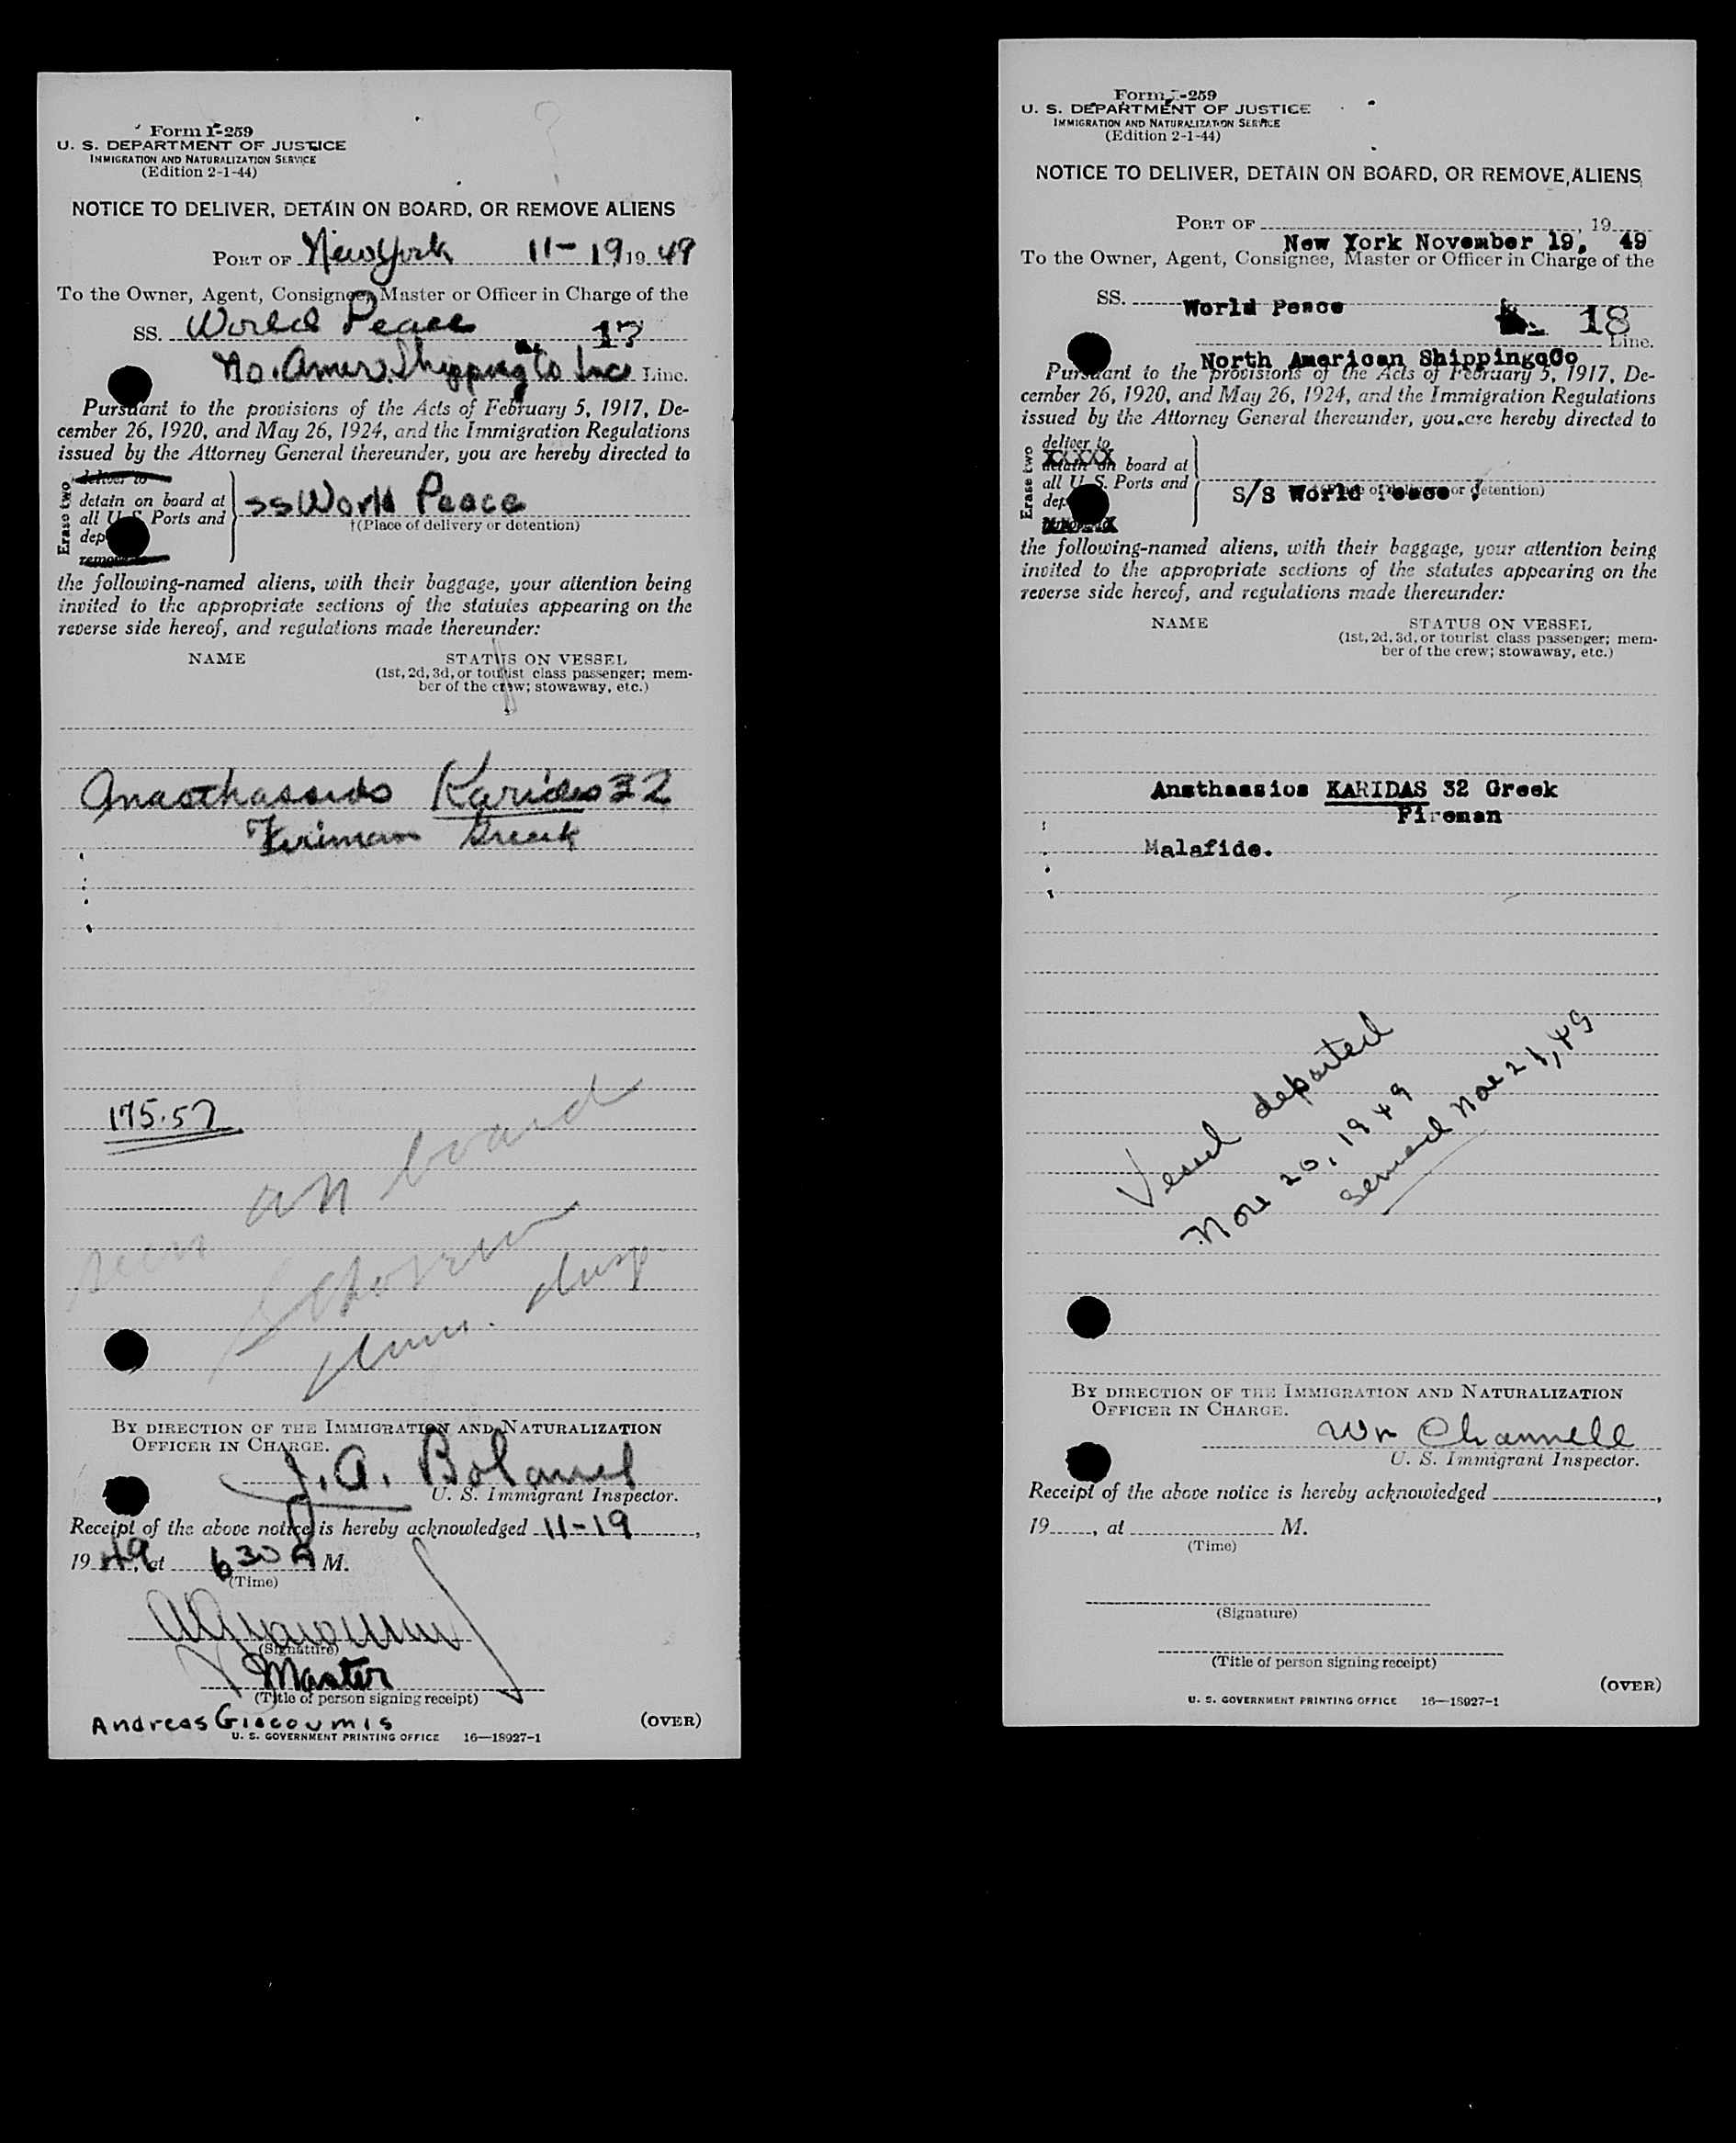 Form I-259
U. S. DEPARTMENT OF JUSTICE
IMMIGRATION AND NATURALIZATION SERVICE
(Edition 2-1-44)
NOTICE TO DELIVER, DETAIN ON BOARD, OR REMOVE ALIENS
PORT OF New York 11-19, 19 49
To the Owner, Agent, Consignee, Master or Officer in Charge of the
SS. World Peace 17
No. Amer. Shipping Co Inc Line.
Pursuant to the provisions of the Acts of February 5, 1917, De-
cember 26, 1920, and May 26, 1924, and the Immigration Regulations
issued by the Attorney General thereunder, you are hereby directed to
Erase two
deliver to
detain on board at
all U. S. Ports and
dep
remove
SS World Peace
†(Place of delivery or detention)
the following-named aliens, with their baggage, your attention being
invited to the appropriate sections of the statutes appearing on the
reverse side hereof, and regulations made thereunder:
NAME STATUS ON VESSEL
(1st, 2d, 3d, or tourist class passenger; mem-
ber of the crew; stowaway, etc.)
Karides 32
Fireman Greek
175.57
seen on board
BY DIRECTION OF THE IMMIGRATION AND NATURALIZATION
OFFICER IN CHARGE.
J. A.
U. S. Immigrant Inspector.
Receipt of the above notice is hereby acknowledged 11-19,
19 49, at 6 30 A M.
(Time)
(Signature)
Master
(Title of person signing receipt)
Andreas Giacoumis
(OVER)
U. S. GOVERNMENT PRINTING OFFICE 16—18927-1
Form I-259
U. S. DEPARTMENT OF JUSTICE
IMMIGRATION AND NATURALIZATION SERVICE
(Edition 2-1-44)
NOTICE TO DELIVER, DETAIN ON BOARD, OR REMOVE ALIENS
PORT OF , 19
New York November 19, 49
To the Owner, Agent, Consignee, Master or Officer in Charge of the
SS. World Peace 18
Line.
North American Shipping Co
Pursuant to the provisions of the Acts of February 5, 1917, De-
cember 26, 1920, and May 26, 1924, and the Immigration Regulations
issued by the Attorney General thereunder, you are hereby directed to
Erase two
deliver to
XXXXX
detain on board at
all U. S. Ports and
dep
S/S World Peace
(Place of delivery or detention)
the following-named aliens, with their baggage, your attention being
invited to the appropriate sections of the statutes appearing on the
reverse side hereof, and regulations made thereunder:
NAME STATUS ON VESSEL
(1st, 2d, 3d, or tourist class passenger; mem-
ber of the crew; stowaway, etc.)
Ansthassios KARIDAS 32 Greek
Fireman
Malafide.
Vessel departed
Nov 20, 1949
Served Nov 21, 49
BY DIRECTION OF THE IMMIGRATION AND NATURALIZATION
OFFICER IN CHARGE.
Wm Channell
U. S. Immigrant Inspector.
Receipt of the above notice is hereby acknowledged ,
19 , at M.
(Time)
(Signature)
(Title of person signing receipt)
(OVER)
U. S. GOVERNMENT PRINTING OFFICE 16—18927-1